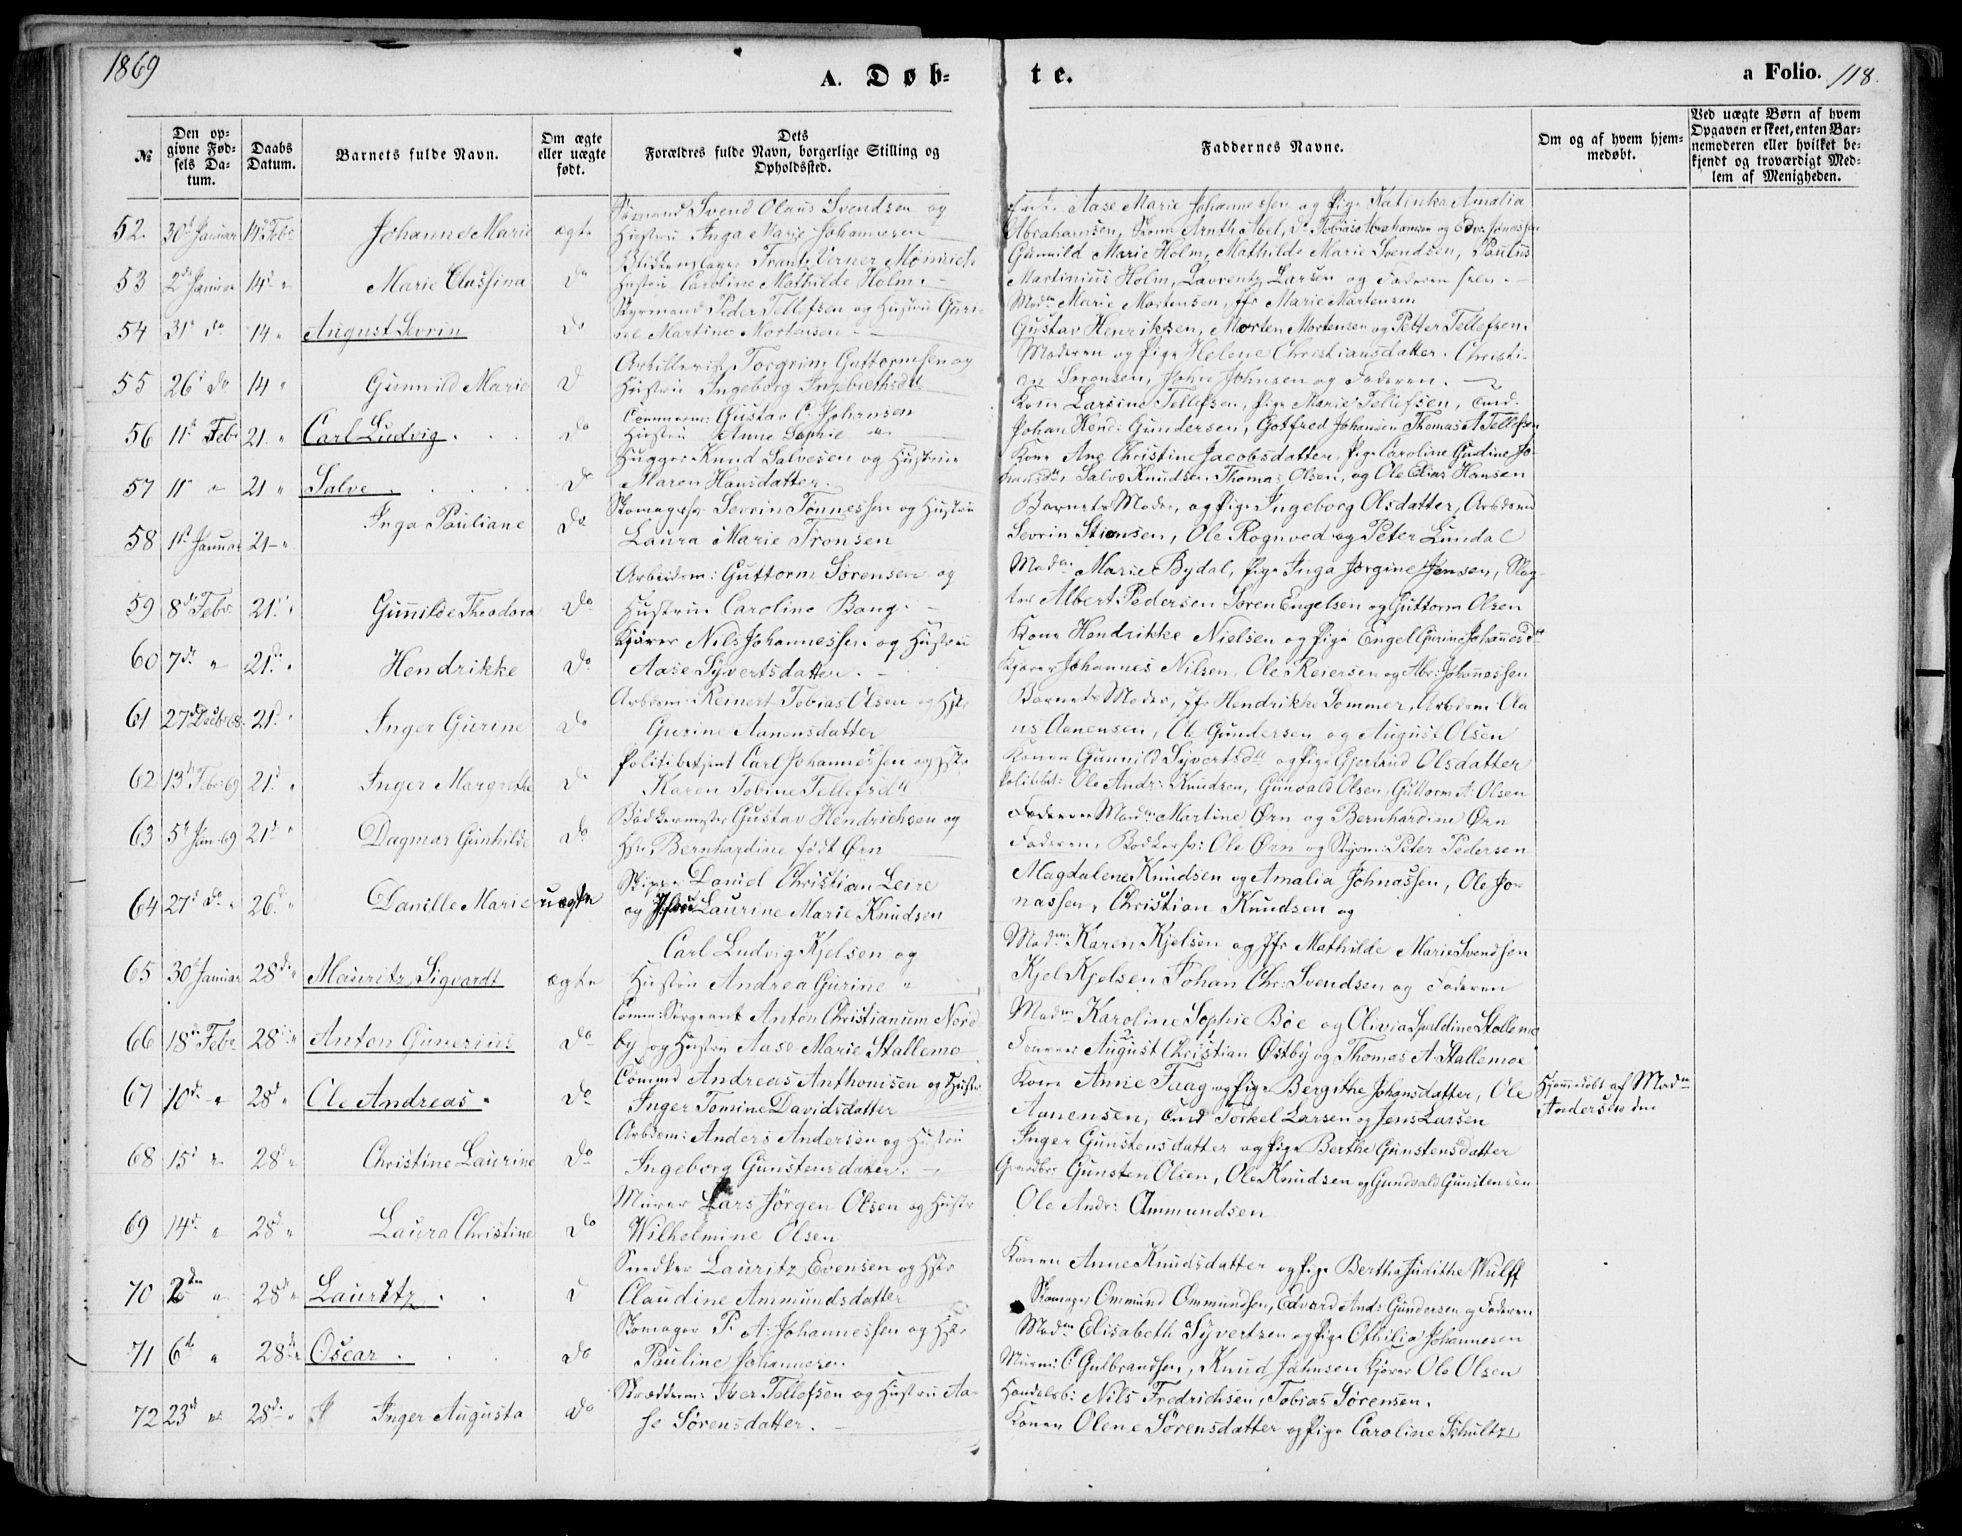 1869
A. Døb-
te.
a Folio. 118.
№
Den op-
givne Fød-
sels Da-
tum.
Daabs
Datum.
Barnets fulde Navn.
Om ægte
eller uægte
født.
Dets
Forældres fulde Navn, borgerlige Stilling og
Opholdssted.
Faddernes Navne.
Om og af hvem hjem-
medøbt.
Ved uægte Børn af hvem
Opgaven er skeet, enten Bar-
nemoderen eller hvilket be-
kjendt og troværdigt Med-
lem af Menigheden.
52. 30d Januar 14d Febr Johanne Marie ægte
Sømand Svend Olaus Svendsen og
Hustru Inga Marie Johannesen
Aase Marie Johannessen og Pige Katinka Amalia
Abrahamsen, Arnth Abel, Tobias Abrahamsen og
53 2d Januar 14d " Marie Classina do
Blikkenslager Frantz Verner
Hustru Caroline Mathilde Holm.
Gunnild Marie Holm, Mathilde Marie Svendsen, Paulus
Martinius Holm, Laurentz Larsen og Faderen
54 31d do 14 " August Sevrin do
Styrmand Peder Tellefsen og Hustru Gun-
Martine Mortensen
Madm Marie Mortensen, Jfr Marie Mortensen
Gustav Henriksen, Morten Mortensen og Petter Tellefsen.
55 26d do 14 " Gunnild Marie d
Artillerist Torgrim Guttormsen og
Hustru Ingeborg Ingebrethsdtr
Moderen og Pige Helene Christiansdatter. Christi-
an Sørensen, John Johnsen og Faderen.
56 11d Febr 21. " Carl Ludvig. do
Gustav C. Johnsen
Hustru Anne Sophie "
Kone Larsine Tellefsen, Pige Marie Tellefsen,
Johan Hend: Gundersen, Gotfred Johansen Thomas A Tellefsen
57 11 " 21 " Salve d
Hugger Knud Salvesen og Hustru
Maren Hansdatter.
Kone Ane Christine Jacobsdatter, Pige Caroline Gudine Jo-
Salve Knudsen, Thomas Olsen, og Ole Elias Hansen
58 1st Januar 21 " Inga Pauliane do
Skomagersv. Sevrin Tønnessen og Hustru
Laura Marie Tronsen
Barnets Moder, og Pige Ingeborg Olsdatter, Arbdm
Sevrin Stiansen, Ole Rognved og Peter Lundal
59 8d Febr 21. " Gunnilde Theodora do
Arbeidsm: Guttorm Sørensen og
Hustru Caroline Bang.
Madm Marie Bydal, Pige Inga Jørgine Jensen, Slag-
ter Albert Pedersen Søren Engelsen og Guttorm Olsen
60 7d " 21. " Hendrikke do
Kjører Nils Johannessen og Hustru
Aase Syvertsdatter.
Kone Hendrikke Nielsen og Pige Engel Gurine Johannesdtr
Kjører Johannes Nilsen, Ole Reiersen og Abr: Johannessen
61 27d Decbr 68. 21d " Inger Gurine do
Arbdsm: Reinert Tobias Olsen og Hstr
Gurine Aanensdatter
Barnets Moder, Jfr Hendrikke Sommer, Arbdsm Aa
us Aanensen, Ole Gundersen og August Olsen
62 13d Febr 69 21d " Inger Margrethe do
Politibetjent Carl Johannessen og Hstr
Karen Tobine Tellefsdtr
Konen Gunnild Syvertsdtr og Pige Gjertrud Olsdatter
Politibt: Ole Andr: Knudsen, Gunvald Olsen, Guttorm A. Olsen
63 5t Jan 69 21d " Dagmar Gunhilde do
Bødkermester Gustav Hendrichsen og
Hstr Bernhardine født Ørn
Madm Martine Ørn og Bernhardine Ørn
Faderen, Bødkersv: Ole Ørn og Styrm: Peter Pedersen
64 27d do " 26. " Danille Marie uægte
Skipper Daniel Christian Leire
og Laurine Marie Knudsen
Magdalene Knudsen og Amalia Johnassen, Ole Jo-
nassen, Christian Knudsen og
65 30d Januar 28d " Mauritz Sigvardt ægte
Carl Ludvig Kjelsen og
Hustru Andrea Gurine "
Madm: Karen Kjelsen og Jfr Mathilde Marie Svendsen
Kjel Kjelsen Johan Chr: Svendsen og Faderen
66 18d Febr 28 " Anton Gunerius do
Comm: Sergeant Anton Christianum Nord
by og Hustru Aase Marie Stallemo
Madm Karoline Sophie Bøe og Olivia Spaldine Stallemo
August Christian Østby og Thomas A. Stallemoe
67 10d " 28d " Ole Andreas " do
Andreas Anthonisen og Hustr
Inger Tomine Davidsdatter
Kone Anne Faag og Pige Bergithe Johansdatter, Ole
Aanensen, Torkel Larsen og Jens Larsen
Hjemmedøbt af Madm
Andersen
68 15d " 28d " Christine Laurine do
Arbdsm: Anders Andersen og Hustru
Ingeborg Gunstensdatter.
Inger Gunstensdatter og Pige Berthe Gunstensdatter
Gunsten Olsen, Ole Knudsen og Gundvald Gunstensen
69 14d " 28d " Laura Christine do
Murer Lars Jørgen Olsen og Hustr
Wilhelmine Olsen
Ole Andr: Ammundsen
70 2den " 28d " Lauritz. d
Snedker Lauritz Evensen og Hstr
Claudine Ammundsdatter
Konen Anne Knudsdatter og Pige Bertha Judithe Wulff
Skomager Ommund Ommundsen, Edvard Ands Gundersen og Faderen
71 6te " 28d " Oscar. do
Skomager P. A. Johannessen og Hstr
Pauline Johannesen.
Madm Elisabeth Syvertsen og Pige Othilia Johannesen
Murm: C Gulbrandsen, Knud Jahnsen Kjører Ole Olsen
72 23d " 28d " Inger Augusta do
Skrædderm: Iver Tellefsen og Hustru Aa-
se Sørensdatter.
Handelsb: Nils Fredrichsen, Tobias Sørensen.
Konen Olene Sørensdatter og Pige Caroline Schultz